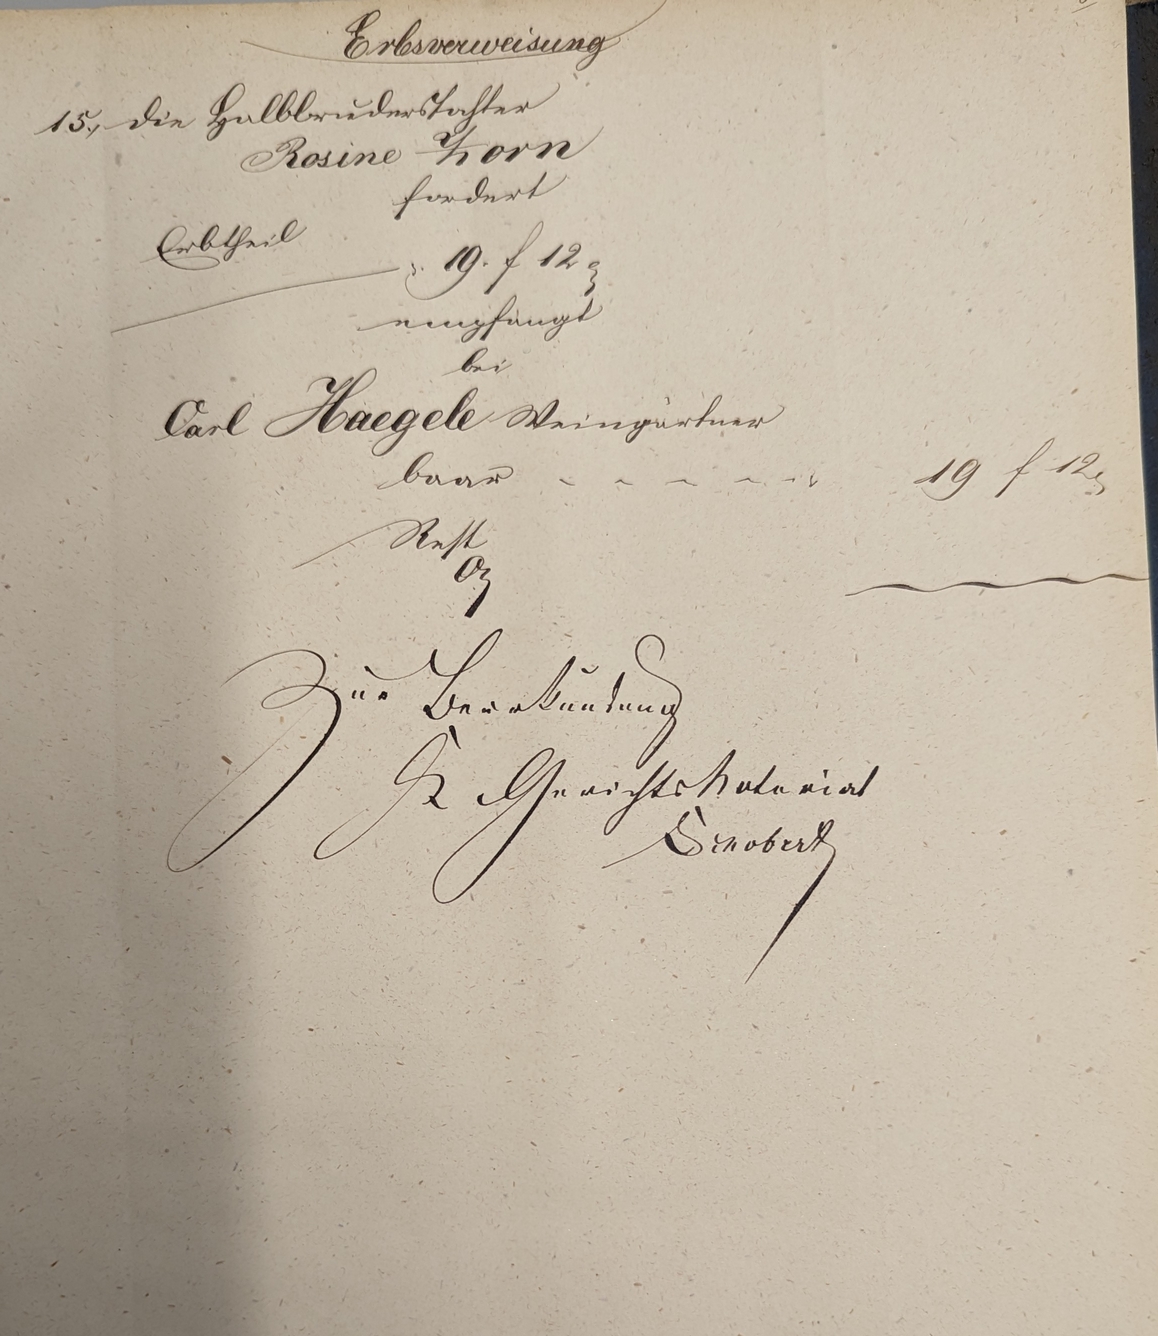 Erbsverweisung
15., die Halbbruderstochter
Rosine Zorn
fordert
Erbtheil
19. f 12
empfängt
bei
Carl Haegele Weingärtner
baar - - - - - 19 f 12
Rest
0
Zur Beurkundung
K Gerichtsnotariat